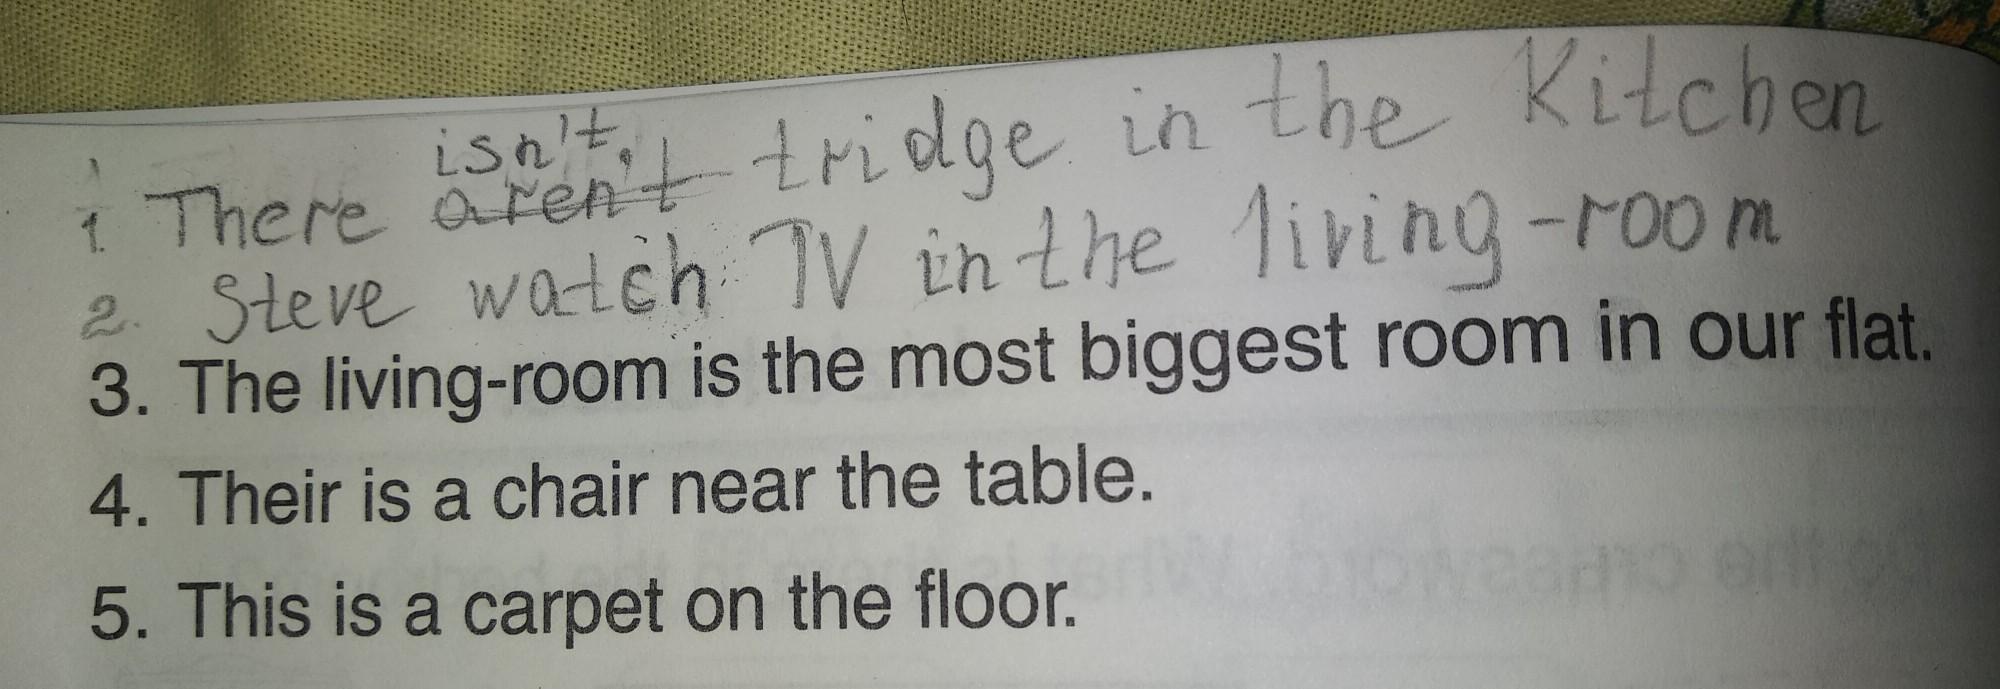 isn't,
1. There aren't tridge in the Kitchen
2. Steve watch TV in the living-room
3. The living-room is the most biggest room in our flat.
4. Their is a chair near the table.
5. This is a carpet on the floor.